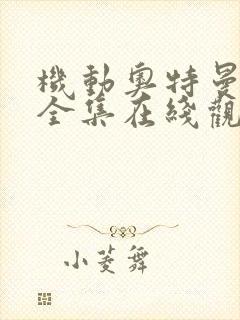 機動奧特曼
全集在綫觀
小菱舞